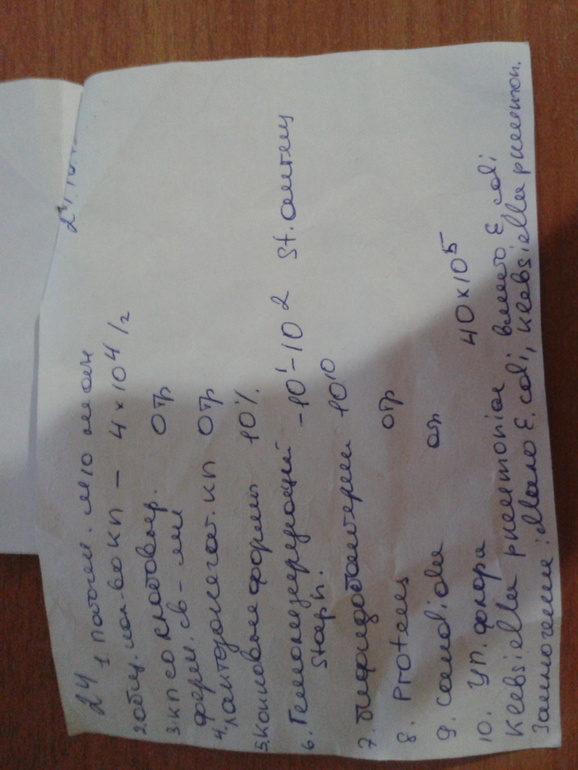 24
1. Патоген. м/о не он
2. общ. кол-во КП – 4 x 10⁴/г
3. КП со слабовыр.
ферм. св-ми отр
4. лактозонегат. КП отр
5. Кокковые формы 10%
6. Гемолизирующий -10¹-10² St. 
Staph.
7. бифидобактерии 10¹⁰
8. Proteus отр
9. Candida отр
10. УП. флора 40x10⁵
Klebsiella pneumoniae вместо E coli
Заключение: Мало E. coli, Klebsiella pneumon.